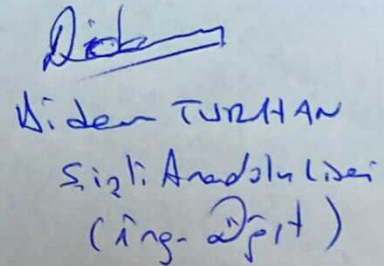 Didem
Didem TURHAN
Şişli Anadolu Lisesi
(İng. Öğrt)